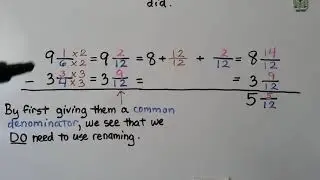 did.
9 1/6 ×2/×2 = 9 2/12 = 8 + 12/12 + 2/12 = 8 14/12
- 3 3/4 ×3/×3 = 3 9/12 = = 3 9/12
5 5/12
By first giving them a common
denominator, we see that we
DO need to use renaming.